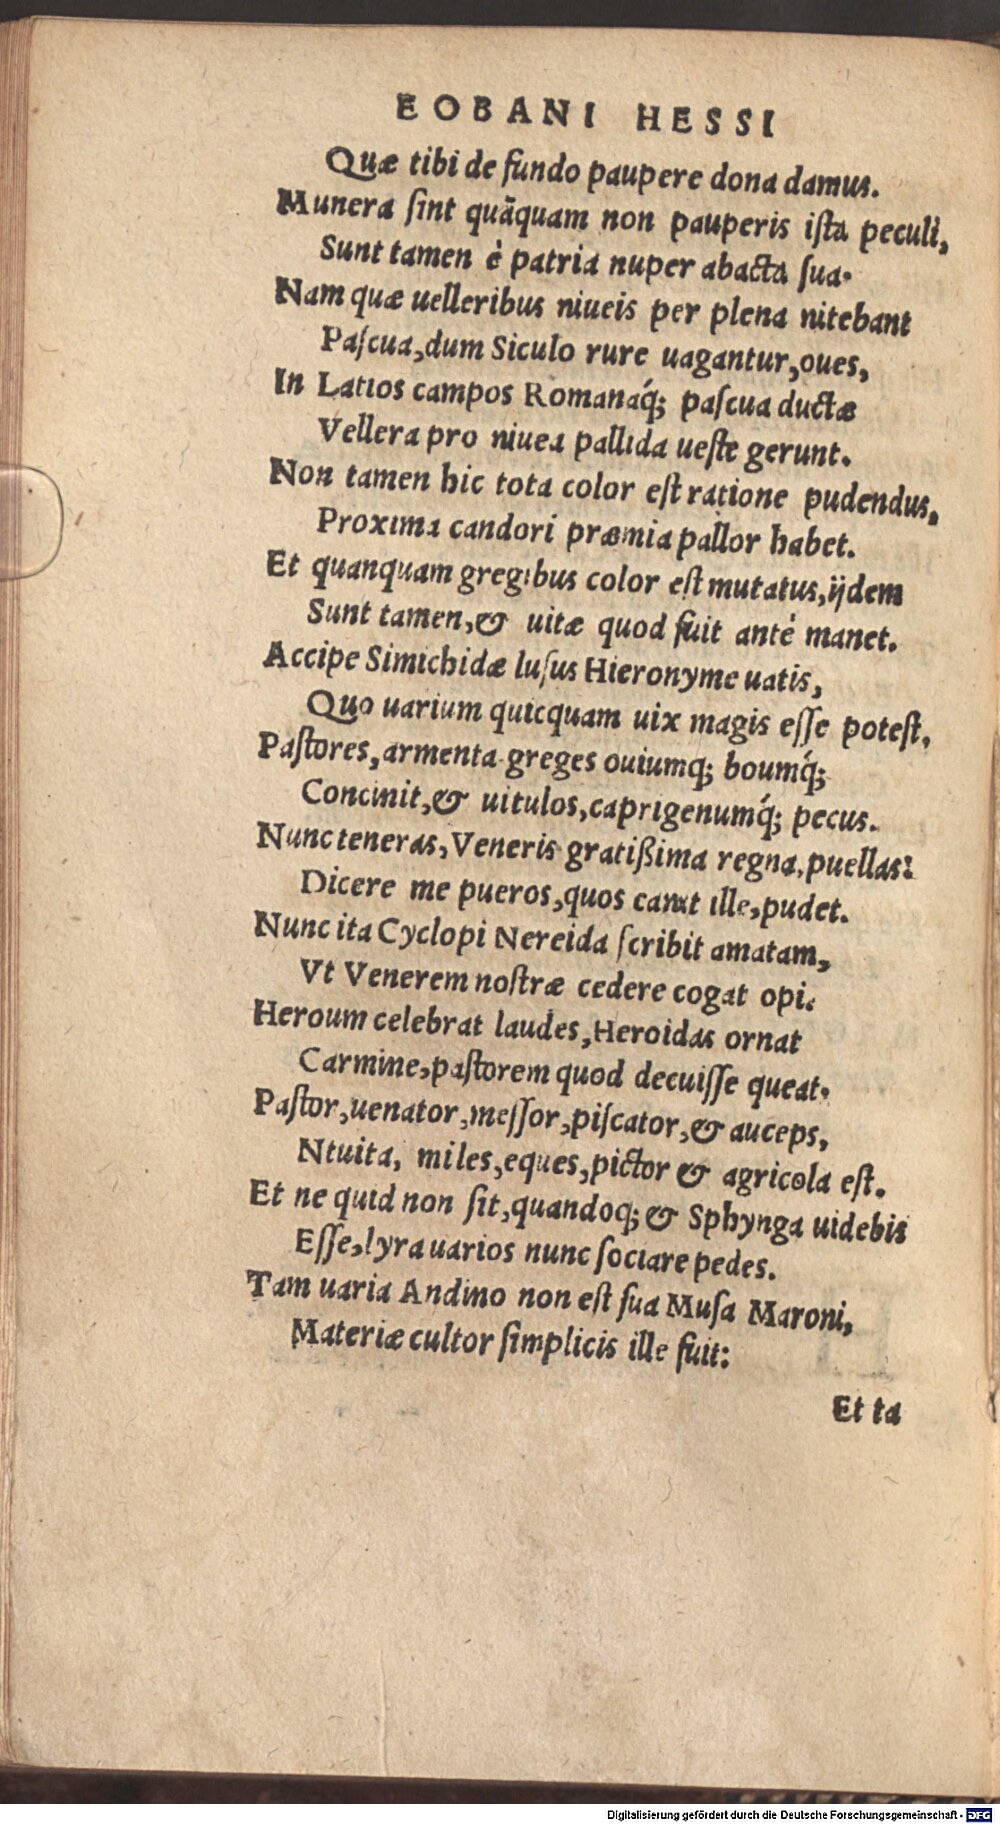 EOBANI HESSI
Quæ tibi de fundo paupere dona damus.
Munera ſint quāquam non pauperis iſta peculî,
Sunt tamen è patria nuper abacta ſua.
Nam quæ uelleribus niueis per plena nitebant
Paſcua, dum Siculo rure uagantur, oues,
In Latios campos Romanaq́; paſcua ductæ
Vellera pro niuea pallida ueſte gerunt.
Non tamen hic tota color eſt ratione pudendus,
Proxima candori præmia pallor habet.
Et quanquam gregibus color eſt mutatus, ijdem
Sunt tamen, & uitæ quod fuit anté manet.
Accipe Simichidæ luſus Hieronyme uatis,
Quo uarium quicquam uix magis eſſe poteſt,
Paſtores, armenta greges ouiumq; boumq́;
Concinit, & uitulos, caprigenumq́; pecus.
Nunc teneras, Veneris gratißima regna, puellas:
Dicere me pueros, quos canit ille, pudet.
Nunc ita Cyclopi Nereida ſcribit amatam,
Vt Venerem noſtræ cedere cogat opi.
Heroum celebrat laudes, Heroidas ornat
Carmine, paſtorem quod decuiſſe queat.
Paſtor, uenator, meſſor, piſcator, & auceps,
Ntuita, miles, eques, pictor & agricola eſt.
Et ne quid non ſit, quandoq; & Sphynga uidebis
Eſſe, lyra uarios nunc ſociare pedes.
Tam uaria Andino non eſt ſua Muſa Maroni,
Materiæ cultor ſimplicis ille fuit:
Et ta
Digitalisierung gefördert durch die Deutsche Forschungsgemeinschaft - DFG